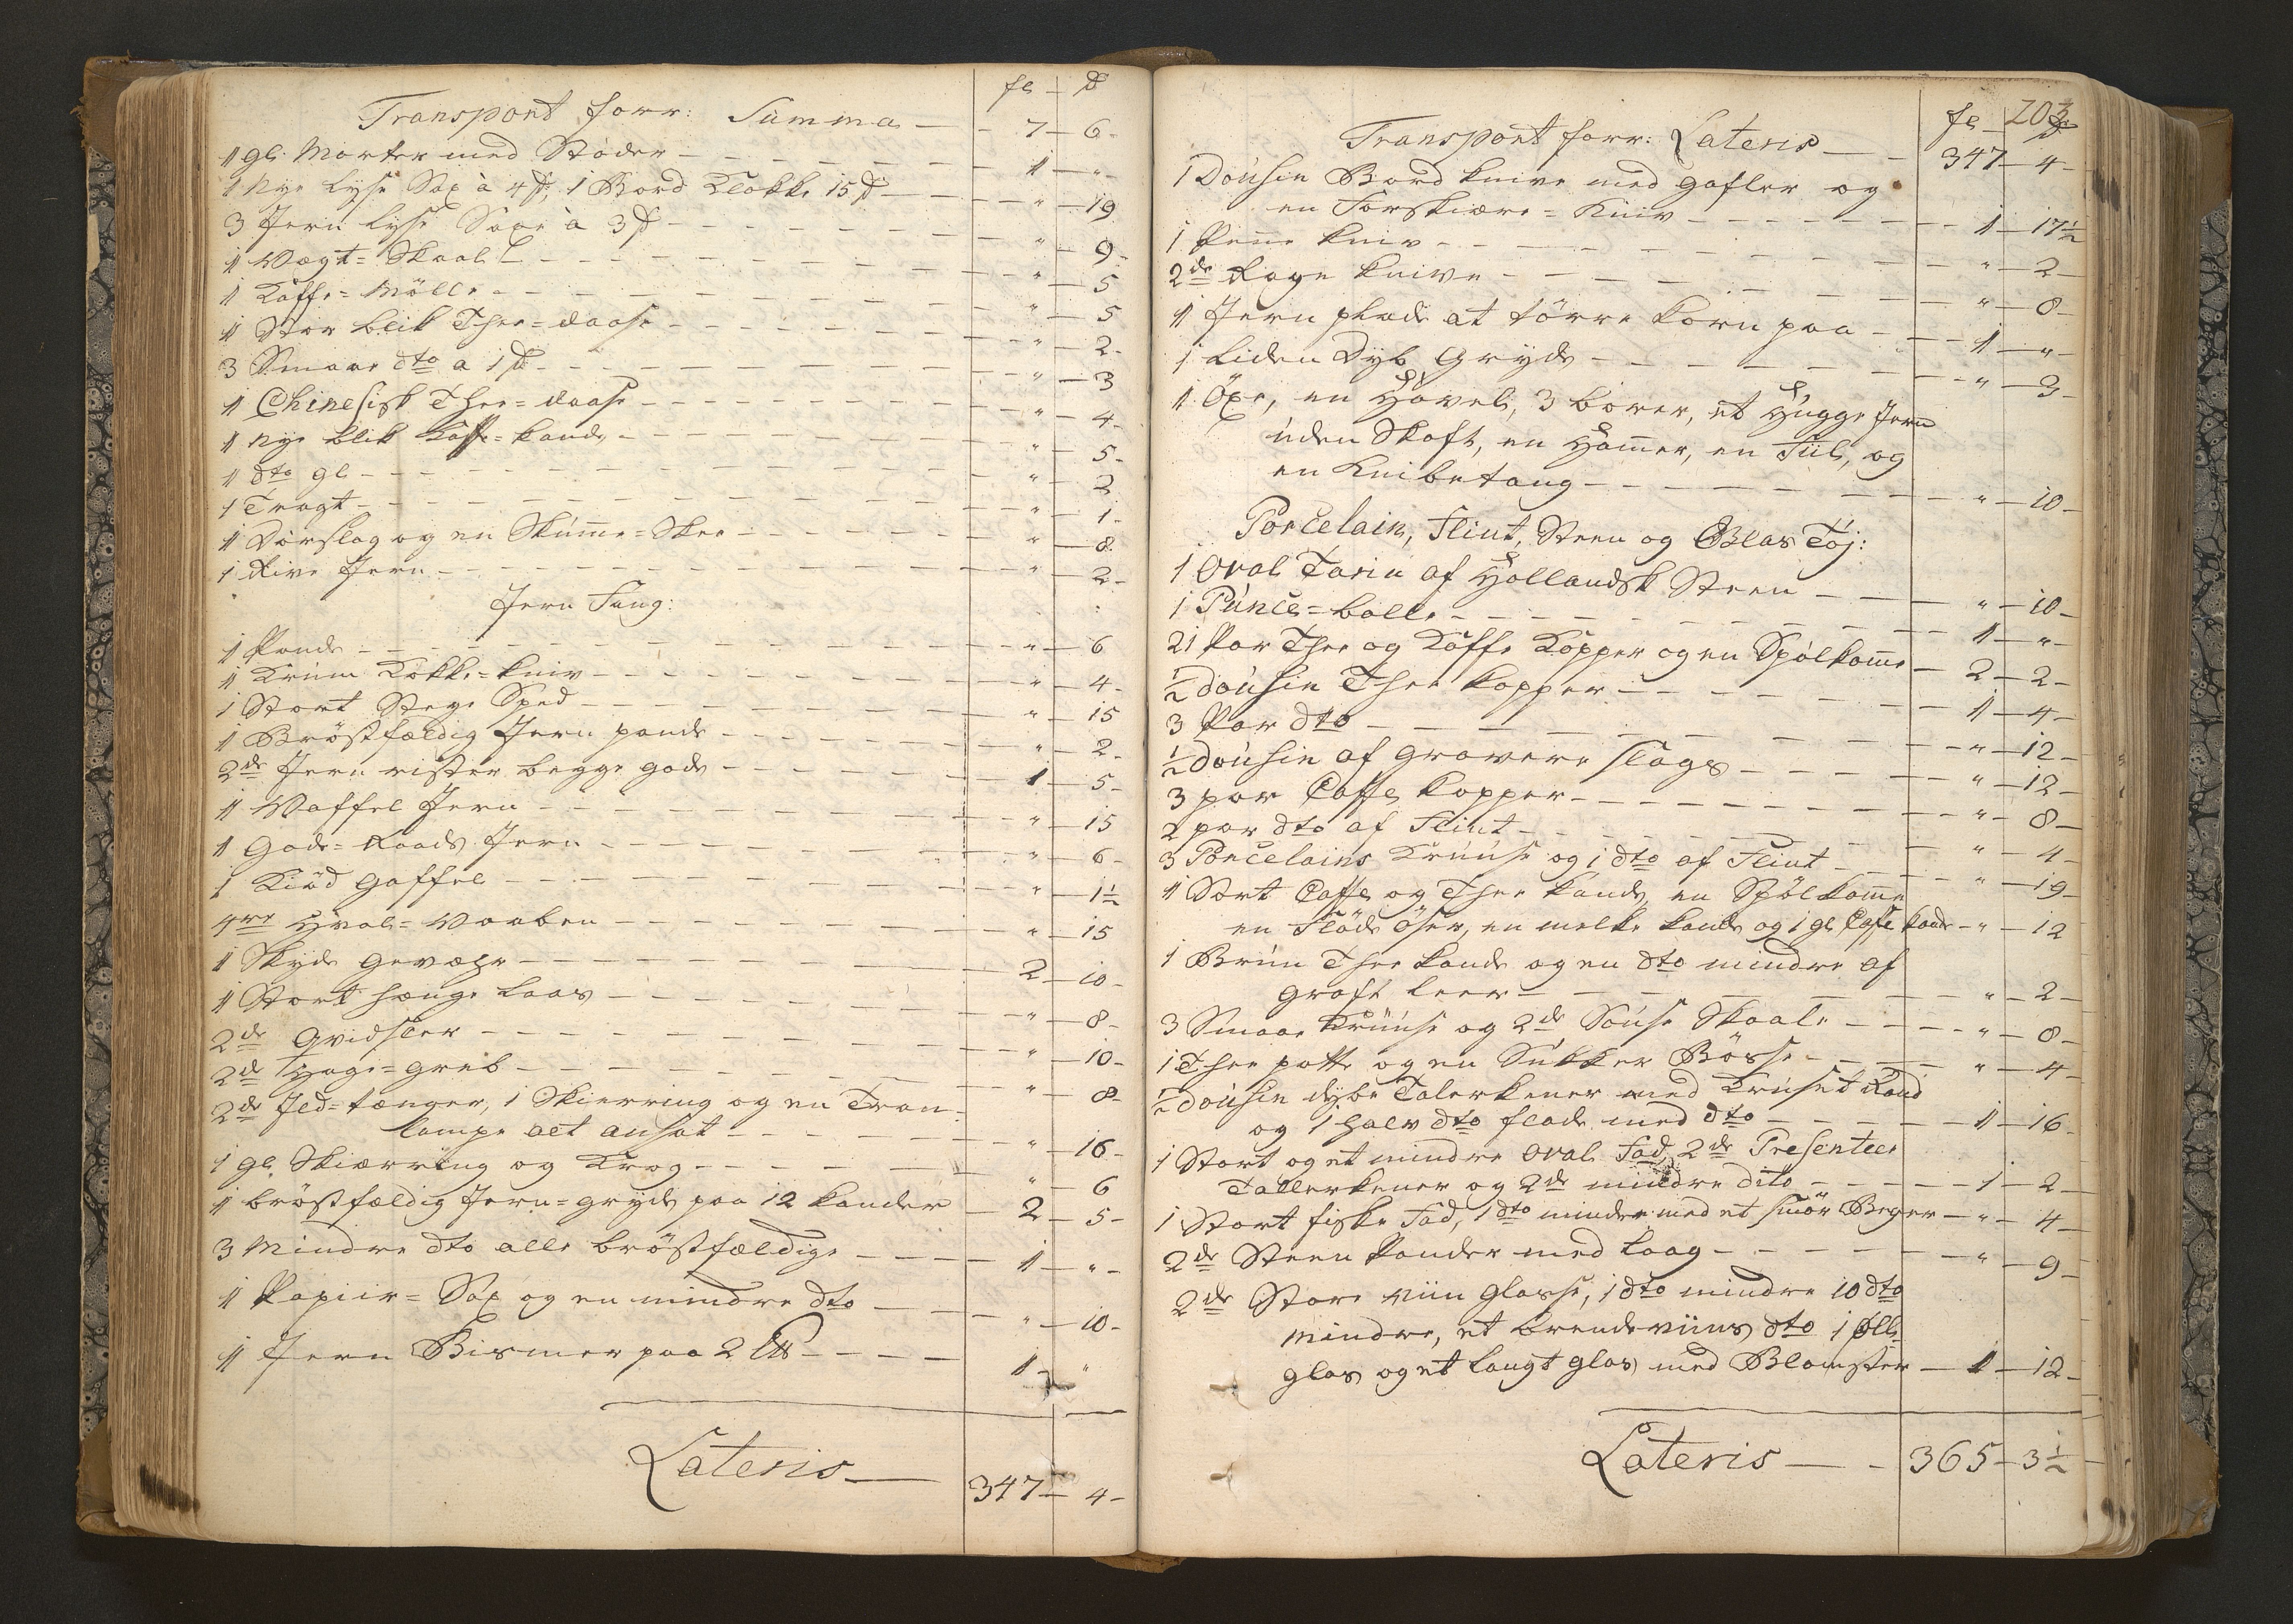 fl — ß
Transport forr: Summa — 7 — 6 -
1 gl: Morter med Stöder — 1 — „ -
1 Nye lyse Sax à 4 ß, 1 Bord Klokke 15 ß — „ — 19
3 Jern lyse Saxe à 3 ß — „ — 9 -
1 Vægt = Skaall — „ — 5
1 Kaffe = Mölle — „ — 5
1 Stor blik Thee = daase — „ — 2 -
3 Smaae dto a 1 ß — „ — 3
1 Chinesisk Thee = daase — „ — 4 -
1 nye blik Kaffe = kande — „ — 5 -
1 dto gl — „ — 2
1 Tragt — „ — 1 -
1 Dörslag og en Skumme = Skee — „ — 8
1 Rive Jern — „ — 2 -
Jern Fang:
1 Pande — „ — 6
1 Krum Kokke = kniv — „ — 4 -
1 Stort Stege Sped — „ — 15
1 Bröstfældig Jern pande — „ — 2 -
2de Jern rister begge gode — 1 — 5 -
1 Vaffel Jern — „ — 15
1 Gode = Raads Jern — „ — 6 -
1 Kiöd gaffel — „ — 1½
4re Hval = Vaaben — „ — 15
1 Skyde gevæhr — 2 — 10 -
1 Stort hænge laas — „ — 8 -
2de Qvidsler — „ — 10 -
2de Hage = greb — „ — 8 -
2de Ild = tænger, 1 Skierring og en Tran
lampe alt ansat — „ — 16 -
1 gl Skiærring og Krog — „ — 6
1 bröstfældig Jern = gryde paa 12 kander — 2 — 5 -
3 Mindre dto alle bröstfældige — 1 — „ -
1 Papiir = Sax og en mindre dto — „ — 10 -
1 Jern Bismer paa 2 L℔ — 1 — „
Lateris — 347 — 4 -
203
fl — ß
Transport forr: Lateris — 347 — 4 -
1 Dousin Bord knive med gafler og
en Forskiære = Kniv — 1 — 17½
1 Penne kniv — „ — 2 -
2de Rage knive — „ — 8 -
1 Jern plade at törre korn paa — 1 — „ -
1 liden dyb gryde — „ — 3 -
1 Öxe, en Hövel, 3 borer, et Hugge Jern
uden Skaft, en Hammer, en Fiil, og
en knibetang — „ — 10 -
Porcelain, Flint, Steen og Glas Töj:
1 Oval Tarin af Hollandsk Steen — „ — 10 -
1 Punce = bolle — 1 — „ -
21 Par Thee og Kaffe Kopper og en Spölkomme — 2 — 2 -
½ dousin Thee kopper — 1 — 4 -
3 Par dto — „ — 12 -
½ dousin af gravere slags — „ — 12 -
3 par Caffe kopper — „ — 8 -
2 par dto af Flint — „ — 4 -
3 Porcelains Kruuse og 1 dto af Flint — „ — 19
1 Sort Caffe og Thee kande, en Spölkomme
en Flöde öser, en melke kande og 1 gl Caffe kande — „ — 12
1 Bruun Thee kande og en dto mindre af
groft leer — „ — 2 -
3 Smaae Kruuse og 2de Souse Skaale — „ — 8 -
1 Thee potte og en Sukker Bösse — „ — 4 -
½ dousin dybe Talerkener med Kruset Rand
og 1 halv dto flade med dto — 1 — 16 -
1 Stort og et mindre oval Fad, 2de Presenteer
Tallerkener og 2de mindre dito — 1 — 2 -
1 Stort fiske Fad, 1 dto mindre med et smör Beger — „ — 4 -
2de Steen Kander med laag — „ — 9 -
2de Store viin glasse, 1 dto mindre 10 dto
mindre, et brendeviins dto 1 Ölle
glas og et langt glas med Blomster — 1 — 12 -
Lateris — 365 — 3½